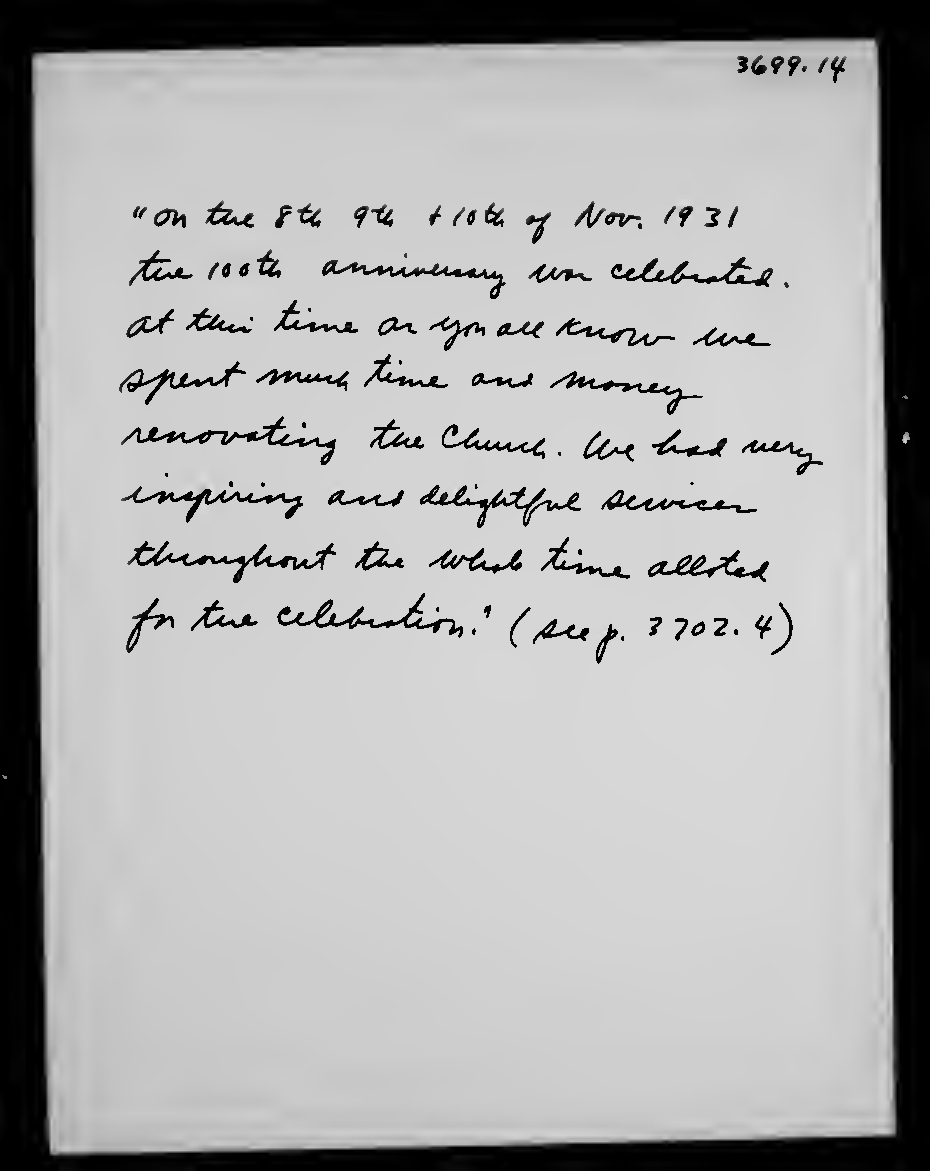 3699.14
"On the 8th 9th + 10th of Nov. 1931
the 100th anniversary was celebrated.
At this time as you all know we
spent much time and money
renovating the Church. We had very
inspiring and delightful services
throughout the whole time alloted
for the celebration." (see p. 3702.4)